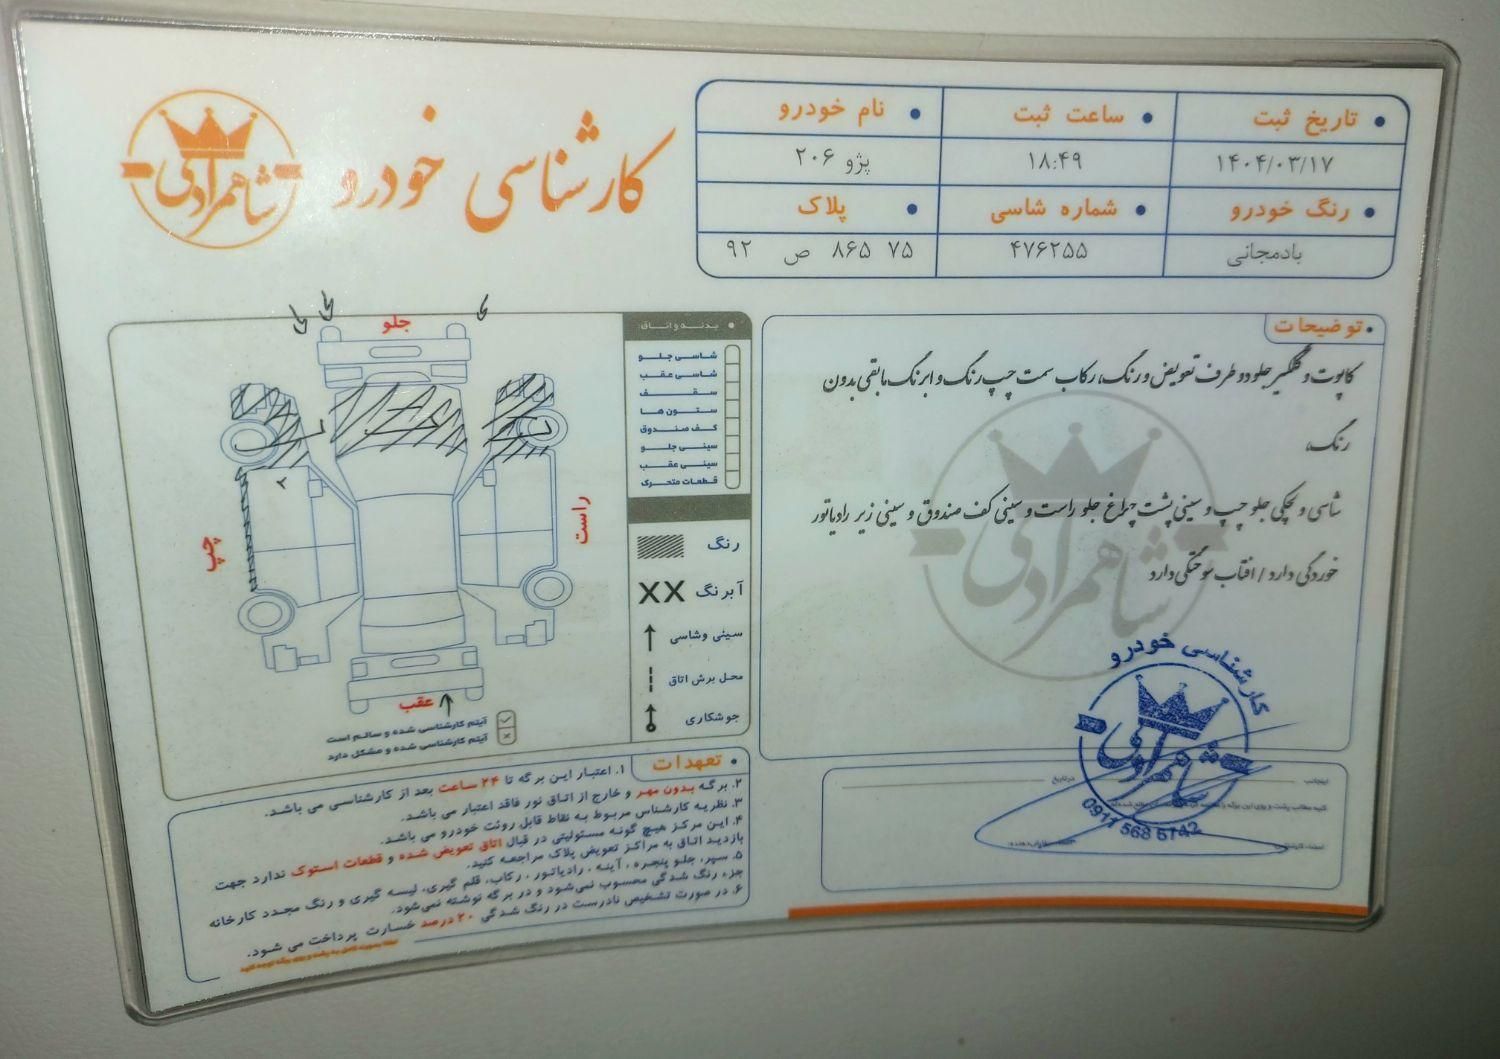 شاهمرادی
کارشناسی خودرو
تاریخ ثبت
ساعت ثبت
نام خودرو
۱۴۰۴/۰۳/۱۷
۱۸:۴۹
پژو ۲۰۶
رنگ خودرو
شماره شاسی
پلاک
بادمجانی
۴۷۶۲۵۵
۷۵ ۸۶۵ ص ۹۲
توضیحات
کاپوت و گلگیر جلو دو طرف تعویض و رنگ، رکاب سمت چپ رنگ و ابرنگ مابقی بدون
رنگ،
شاسی و لچکی جلو چپ و سینی پشت چراغ جلو راست و سینی کف صندوق و سینی زیر رادیاتور
خوردگی دارد / افتاب سوختگی دارد
شاهمرادی
بدنه و اتاق:
شاسی جلو
شاسی عقب
سقف
ستون ها
کف صندوق
سینی جلو
سینی عقب
قطعات متحرک
رنگ
آبرنگ XX
سینی وشاسی
محل برش اتاق
جوشکاری
جلو
راست
چپ
عقب
آیتم کارشناسی شده و سالم است
آیتم کارشناسی شده و مشکل دارد
تعهدات
۱. اعتبار این برگه تا ۲۴ ساعت بعد از کارشناسی می باشد.
۲. برگه بدون مهر و خارج از اتاق نور فاقد اعتبار می باشد.
۳. نظریه کارشناس مربوط به نقاط قابل روئت خودرو می باشد.
۴. این مرکز هیچ گونه مسئولیتی در قبال اتاق تعویض شده و قطعات استوک ندارد جهت
بازدید اتاق به مراکز تعویض پلاک مراجعه کنید.
۵. سپر، جلو پنجره، آینه، رادیاتور، رکاب، قلم گیری، لیسه گیری و رنگ مجدد کارخانه
جزء رنگ شدگی محسوب نمی‌شود و در برگه نوشته نمی‌شود.
۶. در صورت تشخیص نادرست در رنگ شدگی ۲۰ درصد خسارت پرداخت می شود.
اینجانب
در تاریخ
کارشناسی خودرو
شاهمرادی
0911 568 5742